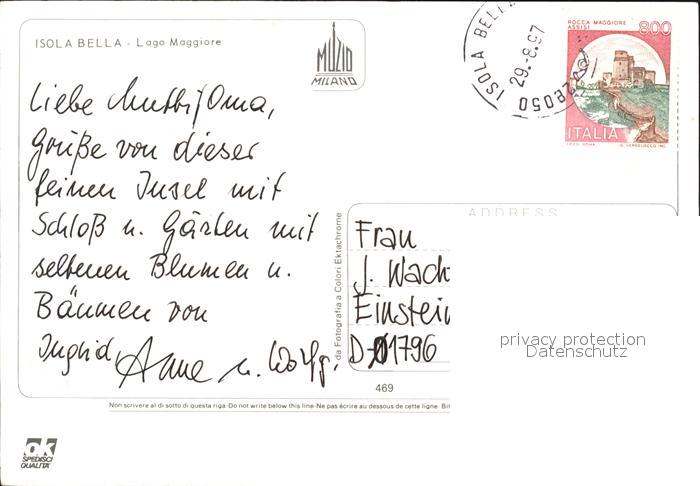 ISOLA BELLA - Lago Maggiore
MUZIO
MILANO
ISOLA BELLA
29.-8.97
28050
ROCCA MAGGIORE
ASSISI
800
ITALIA
Liebe Mutti/Oma,
Grüße von dieser
feinen Insel mit
Schloß u. Gärten mit
seltenen Blumen u.
Bäumen von
Ingrid, Anne u. Wolfg.
da Fotografia a Colori Ektachrome
ADDRESS
Frau
J. Wach
Einstein
D-01796
privacy protection
Datenschutz
469
Non scrivere al di sotto di questa riga-Do not write below this line-Ne pas écrire au dessous de cette ligne Bit
ok
SPEDISCI
QUALITA'